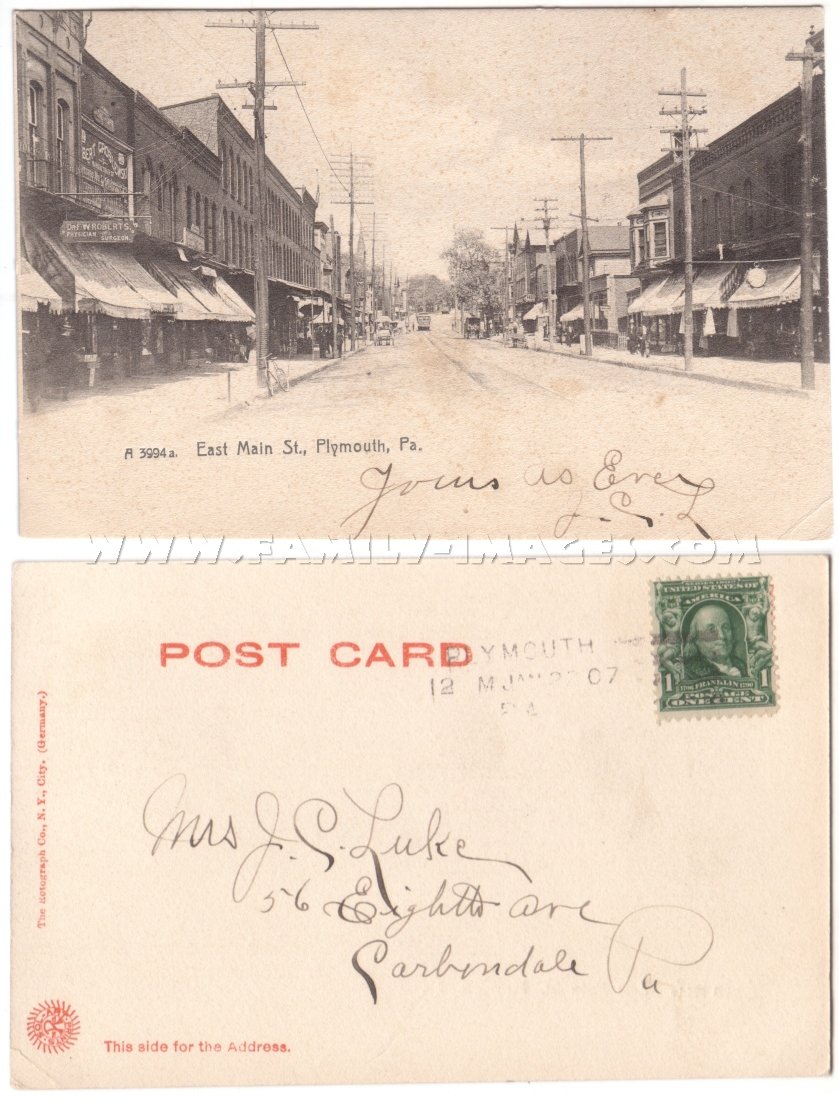 DR. F. W. ROBERTS.
PHYSICIAN SURGEON.
A 3994a. East Main St., Plymouth, Pa.
Yours as Ever
J. C. L
WWW.FAMILY-IMAGES.COM
POST CARD
PLYMOUTH
12 M JAN 07
PA
UNITED STATES OF
AMERICA
1 1
1706 FRANKLIN 1790
POSTAGE
ONE CENT
The Rotograph Co., N. Y., City. (Germany.)
Mrs J. C. Luke
56 Eighth ave
Carbondale Pa
This side for the Address.